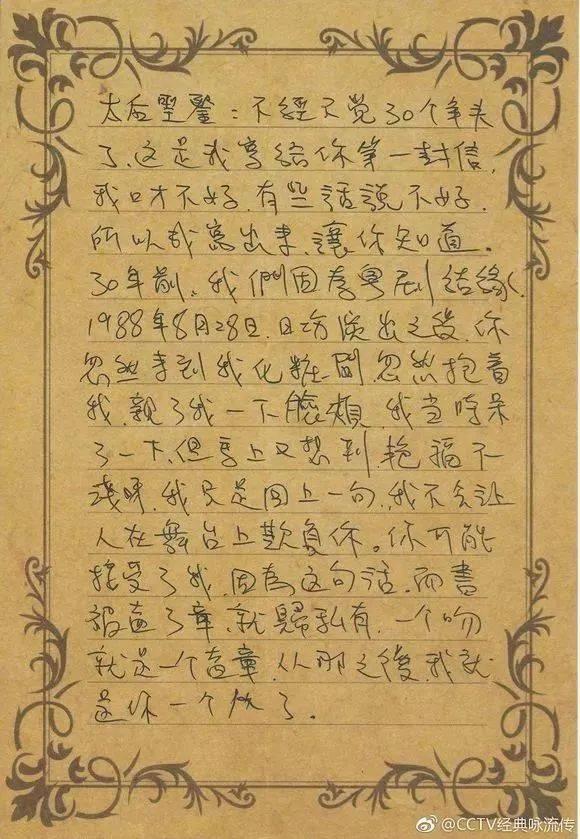 太后聖鑒：不經不覺30个年头
了，这是我寫给你第一封信，
我口才不好，有些話說不好，
所以我寫出來，讓你知道。
30年前，我們因為粤剧结缘，
1988年8月28日，日场演出之後，你
忽然來到我化粧間，忽然抱着
我，親了我一下臉頰，我当時呆
了一下，但馬上又想到，艳福不
淺呀，我只是回上一句，我不会让
人在舞台上欺負你。你可能
接受了我，因為这句话，而書
被盖了章，就歸私有，一个吻
就是一个盖章，从那之後，我就
是你一个的了。
@CCTV经典咏流传